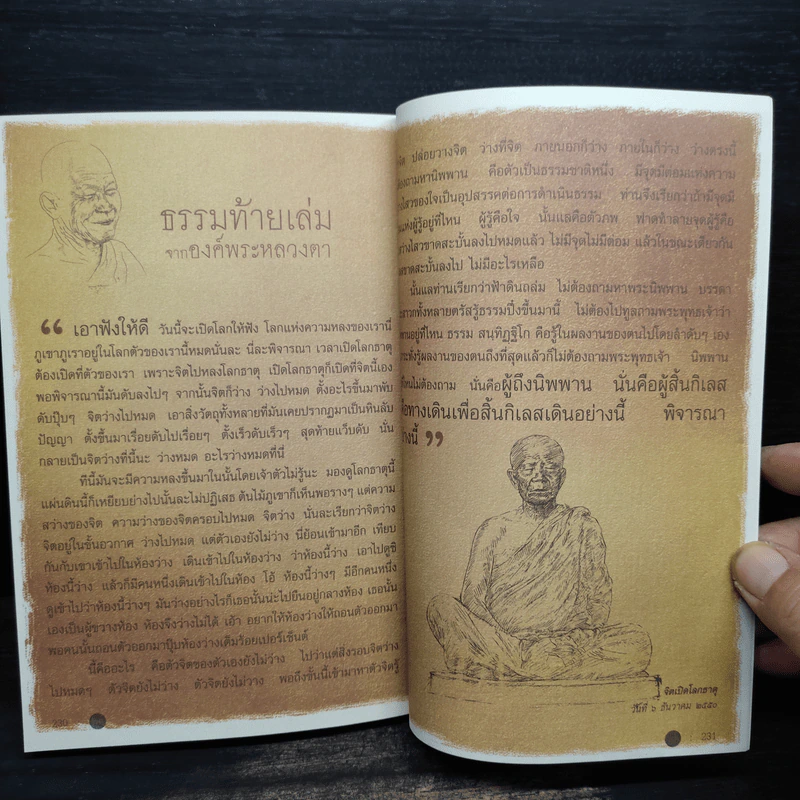 ธรรมท้ายเล่ม
จากองค์พระหลวงตา
“ เอาฟังให้ดี วันนี้จะเปิดโลกให้ฟัง โลกแห่งความหลงของเรานี้
ภูเขาภูเราอยู่ในโลกตัวของเรานี้หมดนั่นละ นี่ละพิจารณา เวลาเปิดโลกธาตุ
ต้องเปิดที่ตัวของเรา เพราะจิตไปหลงโลกธาตุ เปิดโลกธาตุก็เปิดที่จิตนี้เอง
พอพิจารณานี้มันดับลงไปๆ จากนั้นจิตก็ว่าง ว่างไปหมด ตั้งอะไรขึ้นมาพับ
ดับปุ๊บๆ จิตว่างไปหมด เอาสิ่งวัตถุทั้งหลายที่มันเคยปรากฏมาเป็นหินลับ
ปัญญา ตั้งขึ้นมาเรื่อยดับไปเรื่อยๆ ตั้งเร็วดับเร็วๆ สุดท้ายแว็บดับ นั่น
กลายเป็นจิตว่างที่นี้นะ ว่างหมด อะไรว่างหมดที่นี่
ที่นี้มันจะมีความหลงขึ้นมาในนั้นโดยเจ้าตัวไม่รู้นะ มองดูโลกธาตุนี้
แผ่นดินนี้ก็เหยียบย่างไปนั้นละไม่ปฏิเสธ ต้นไม้ภูเขาก็เห็นพอรางๆ แต่ความ
สว่างของจิต ความว่างของจิตครอบไปหมด จิตว่าง นั่นละเรียกว่าจิตว่าง
จิตอยู่ในชั้นอวกาศ ว่างไปหมด แต่ตัวเองยังไม่ว่าง นี่ย้อนเข้ามาอีก เทียบ
กันกับเขาเข้าไปในห้องว่าง เดินเข้าไปในห้องว่าง ว่าห้องนี้ว่าง เอาไปดูซิ
ห้องนี้ว่าง แล้วก็มีคนหนึ่งเดินเข้าไปในห้อง โอ้ ห้องนี้ว่างๆ มีอีกคนหนึ่ง
ดูเข้าไปว่าห้องนี้ว่างๆ มันว่างอย่างไรก็เธอนั้นน่ะไปยืนอยู่กลางห้อง เธอนั้น
เองเป็นผู้ขวางห้อง ห้องจึงว่างไม่ได้ เอ้า อยากให้ห้องว่างให้ถอนตัวออกมา
พอคนนั้นถอนตัวออกมาปุ๊บห้องว่างเต็มร้อยเปอร์เซ็นต์
นี้คืออะไร คือตัวจิตของตัวเองยังไม่ว่าง ไปว่าแต่สิ่งรอบจิตว่าง
ไปหมดๆ ตัวจิตยังไม่ว่าง ตัวจิตยังไม่วาง พอถึงขั้นนี้เข้ามาหาตัวจิตรู้
230
จิต ปล่อยวางจิต ว่างที่จิต ภายนอกก็ว่าง ภายในก็ว่าง ว่างตรงนี้
ต้องถามหานิพพาน คือตัวเป็นธรรมชาติหนึ่ง มีจุดมีต่อมแห่งความ
ใสของใจเป็นอุปสรรคต่อการดำเนินธรรม ท่านจึงเรียกว่าถ้ามีจุดมี
แห่งผู้รู้อยู่ที่ไหน ผู้รู้คือใจ นั้นแลคือตัวภพ ฟาดทำลายจุดผู้รู้คือ
ว่างไสวขาดสะบั้นลงไปหมดแล้ว ไม่มีจุดไม่มีต่อม แล้วในขณะเดียวกัน
ขาดสะบั้นลงไป ไม่มีอะไรเหลือ
นั้นแลท่านเรียกว่าฟ้าดินถล่ม ไม่ต้องถามหาพระนิพพาน บรรดา
สาวกทั้งหลายตรัสรู้ธรรมปึ๋งขึ้นมานี้ ไม่ต้องไปทูลถามพระพุทธเจ้าว่า
พานอยู่ที่ไหน ธรรม สนฺทิฏฺฐิโก คือรู้ในผลงานของตนไปโดยลำดับๆ เอง
ระทั่งรู้ผลงานของตนถึงที่สุดแล้วก็ไม่ต้องถามพระพุทธเจ้า นิพพาน
ที่ไหนไม่ต้องถาม นั่นคือผู้ถึงนิพพาน นั่นคือผู้สิ้นกิเลส
คือทางเดินเพื่อสิ้นกิเลสเดินอย่างนี้ พิจารณา
ย่างนี้ ”
จิตเปิดโลกธาตุ
วันที่ ๖ ธันวาคม ๒๕๕๐
231